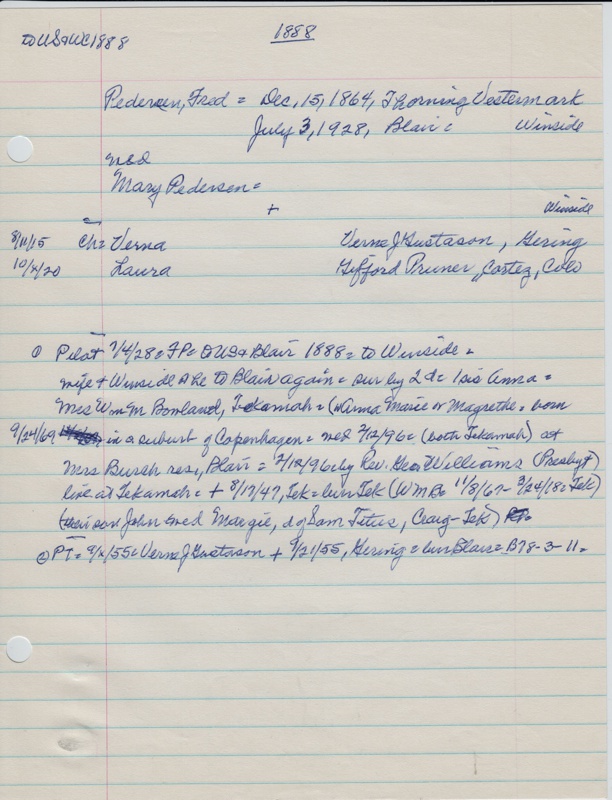 to US & WC 1888
1888
Pedersen, Fred = Dec, 15, 1864, Thorning Vestermark
July 3, 1928, Blair = Winside
med
Mary Pedersen =
+ Winside
8/11/15 Ch: Verna Verne J Gustason, Gering
10/x/20 Laura Gifford Pruner, Cortez, Colo
① Pilot 7/4/28 = FP = to US & Blair 1888 = to Winside =
wife + Winside & he to Blair again = sur by 2 d = 1 sis Anna =
Mrs Wm M Bowland, Tekamah = (Anna Marie or Magrethe = born
9/24/69 in a suburb of Copenhagen = med 2/12/96 = (both Tekamah) at
Mrs Burch res, Blair = 2/12/96 by Rev. Geo Williams (Presbyt)
live at Tekamah = + 8/17/47, Tek = bur Tek (WMB = 11/8/67 - 3/24/18 = Tek)
(their son John med Margie, d of Sam Titus, Craig - Tek)
② PT = 9/x/55 = Verne J Gustason + 9/21/55, Gering = bur Blair = B78-3-11 =